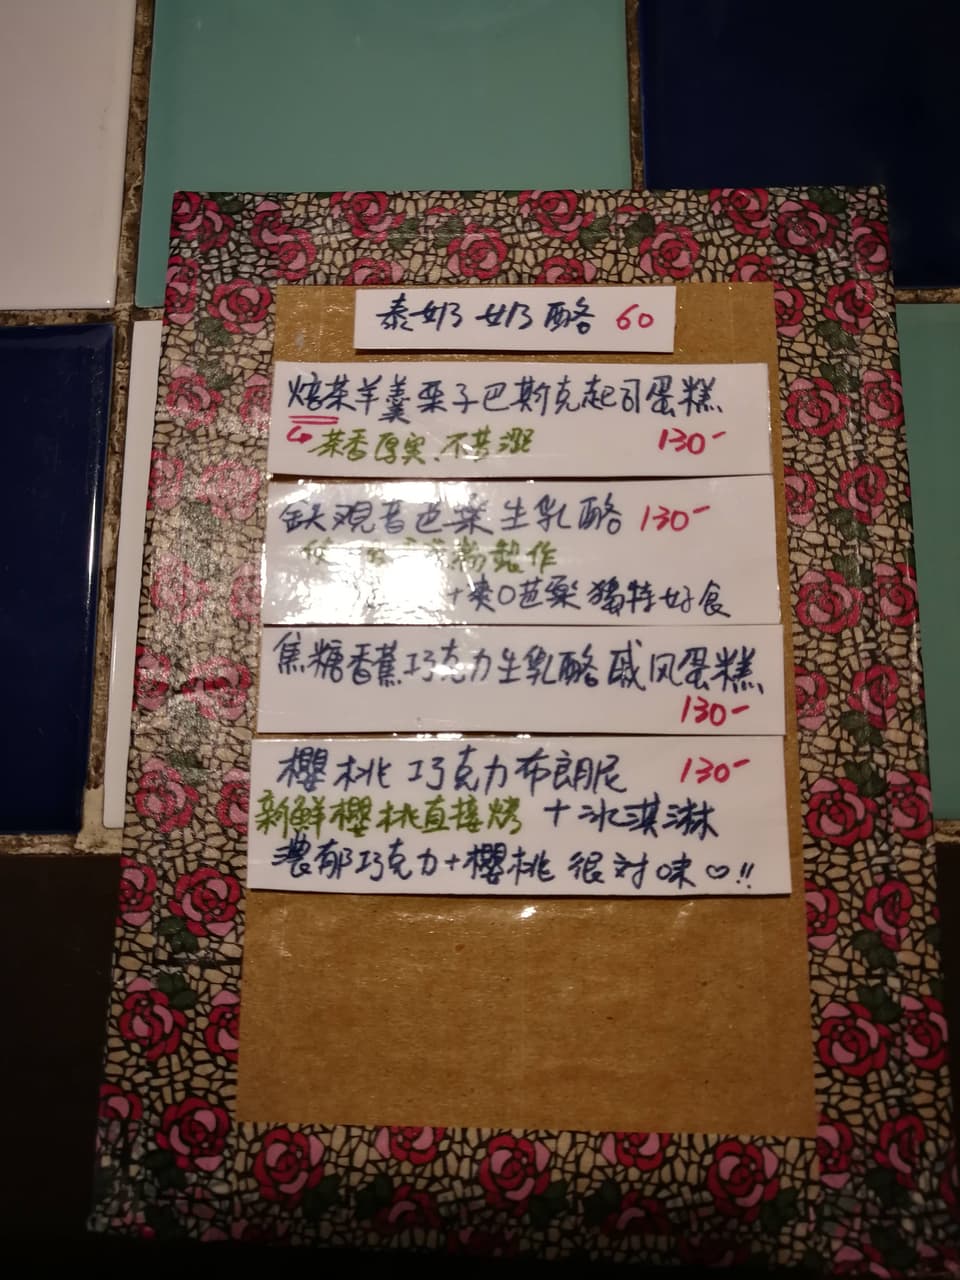 泰奶奶酪 60
焙茶羊羹栗子巴斯克起司蛋糕
茶香厚实、不苦澀 130-
鉄观音芭楽生乳酪 130-
製作
+爽口芭楽 獨特好食
焦糖香蕉巧克力生乳酪戚风蛋糕
130-
櫻桃巧克力布朗尼 130-
新鮮櫻桃直接烤 +冰淇淋
濃郁巧克力+櫻桃 很对味♡!!